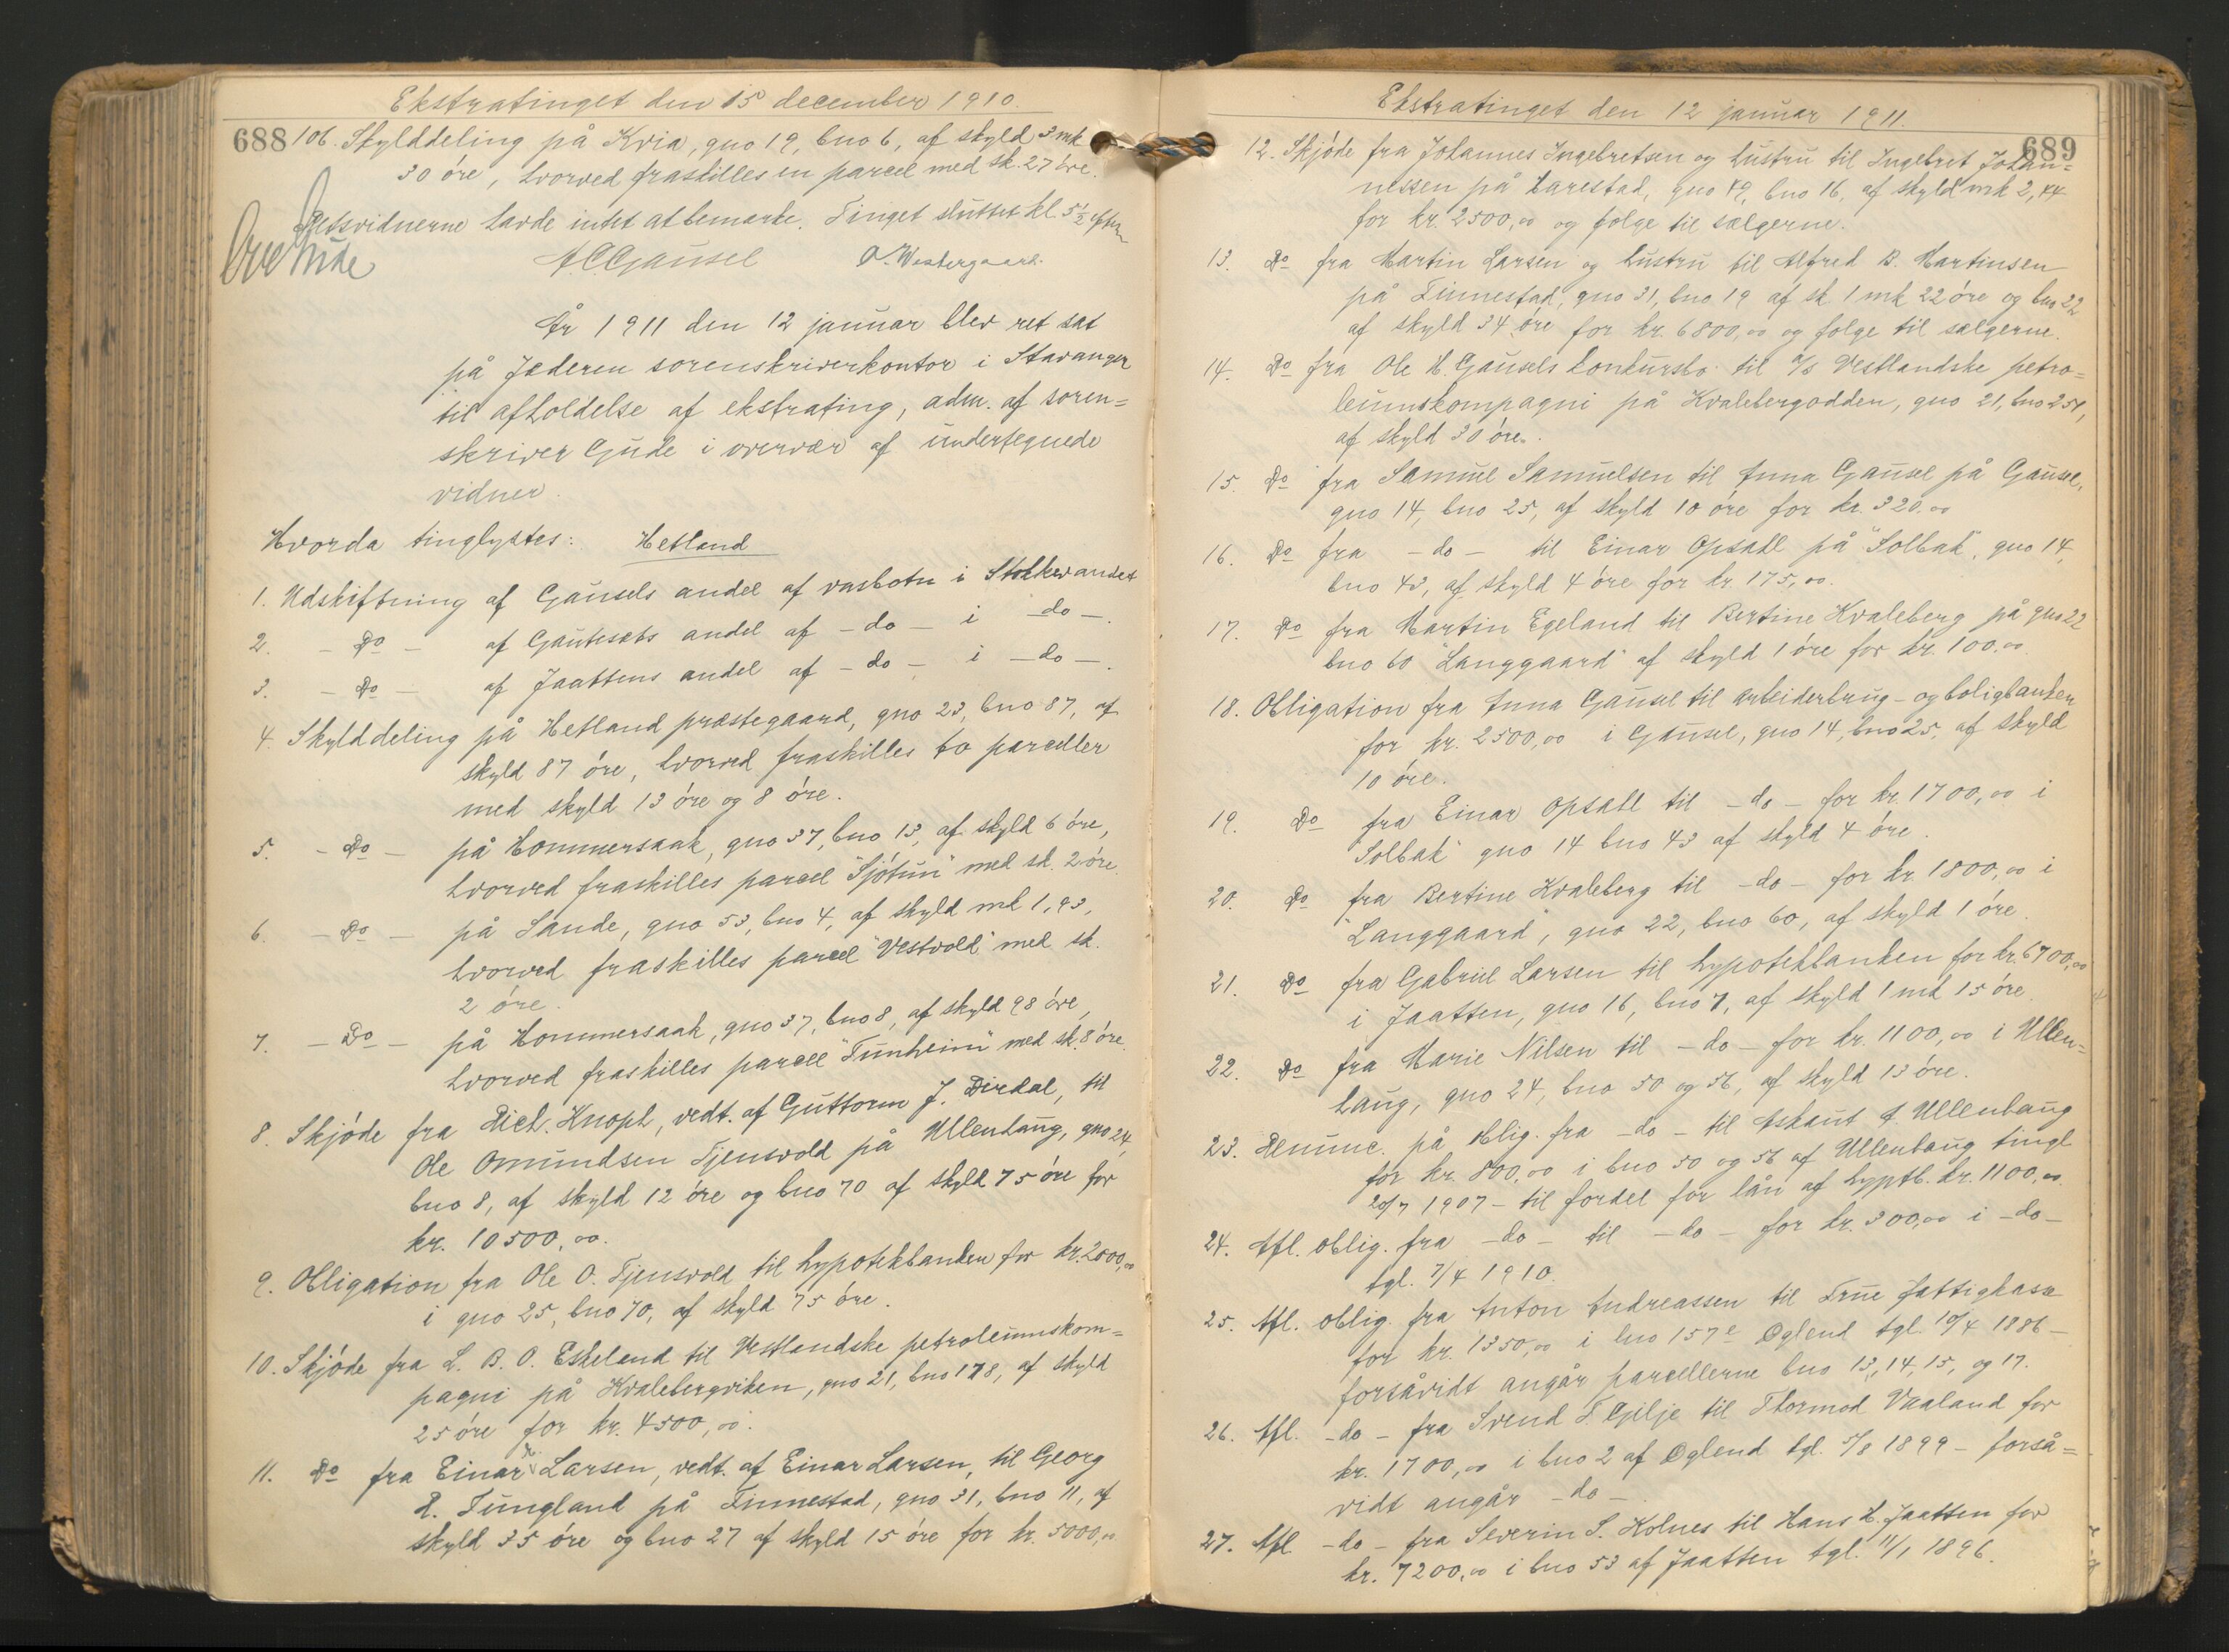 Ekstratinget den 15 december 1910.
688
106. Skylddeling på Kvia, gno 19, bno 6, af skyld 3 mk
30 øre, hvorved fraskilles en parcel med sk. 27 øre.
Retsvidnerne havde intet at bemærke. Tinget sluttet kl 5½ eftm
Ove Gude A C Gausel O. Westergaard.
År 1911 den 12 januar blev ret sat
på Jæderen sorenskriverkontor i Stavanger
til afholdelse af ekstrating, adm. af soren=
skriver Gude i overvær af undertegnede
vidner.
Hvorda tinglystes: Hetland
1. Udskiftning af Gausels andel af vasbotn i Stokkevandet
2. - Do - af Gautesæts andel af - do - i - do -.
3. - Do - af Jaattens andel af - do - i - do -.
4. Skylddeling på Hetland præstegaard, gno 23, bno 87, af
skyld 87 øre, hvorved fraskilles to parceller
med skyld 13 øre og 8 øre.
5. - Do - på Hommersaak, gno 37, bno 13, af skyld 6 øre,
hvorved fraskilles parcel "Sjøtun" med sk. 2 øre.
6. - Do - på Sande, gno 53, bno 4, af skyld mk 1,93,
hvorved fraskilles parcel "Vestvold" med sk.
2 øre.
7. - Do - på Hommersaak, gno 37, bno 8, af skyld 98 øre,
hvorved fraskilles parcel "Tunheim" med sk. 8 øre.
8. Skjøde fra Rich. Knoph, vedt. af Guttorm J. Dirdal, til
Ole Omundsen Tjensvold på Ullenhaug, gno 24,
bno 8, af skyld 12 øre og bno 70 af skyld 75 øre for
kr. 10500,00.
9. Obligation fra Ole O. Tjensvold til hypotekbanken for kr. 2000,00
i gno 25, bno 70, af skyld 75 øre.
10. Skjøde fra L. B. O. Eskeland til Vestlandske petroleumskom=
pagni på Kvalebergviken, gno 21, bno 178, af skyld
25 øre for kr. 4500,00.
11. Do fra Einar Larsen, vedt. af Einar Larsen, til Georg
R. Tungland på Finnestad, gno 31, bno 11, af
skyld 35 øre og bno 27 af skyld 15 øre for kr. 5000,00
Ekstratinget den 12 januar 1911.
689
12. Skjøde fra Johannes Ingebretsen og hustru til Ingebret Johan=
nessen på Harestad, gno 49, bno 16, af skyld mk 2,44
for kr. 2500,00 og følge til sælgerne.
13. Do fra Martin Larsen og hustru til Alfred B. Martinsen
på Finnestad, gno 31, bno 19 af sk 1 mk 22 øre og bno 22
af skyld 34 øre for kr. 6800,00 og følge til sælgerne.
14. Do fra Ole H. Gausels konkursbo til A/S Vestlandske petro=
leumskompagni på Kvalebergodden, gno 21, bno 251,
af skyld 30 øre.
15. Do fra Samuel Samuelsen til Anna Gausel på Gausel,
gno 14, bno 25, af skyld 10 øre for kr. 320.00
16. Do fra - do - til Einar Opsahl på "Solbak", gno 14,
bno 43, af skyld 4 øre for kr. 175,00.
17. Do fra Martin Egeland til Bertine Kvaleberg på gno 22
bno 60 "Langgaard" af skyld 1 øre for kr. 100.00
18. Obligation fra Anna Gausel til arbeiderbrug- og boligbanken
for kr. 2500,00 i Gausel, gno 14, bno 25, af skyld
10 øre.
19. Do fra Einar Opsahl til - do - for kr. 1700,00 i
"Solbak" gno 14 bno 43 af skyld 4 øre.
20. Do fra Bertine Kvaleberg til - do - for kr. 1800,00 i
"Langgaard", gno 22, bno 60, af skyld 1 øre.
21. Do fra Gabriel Larsen til hypotekbanken for kr. 6700,00
i Jaatten, gno 16, bno 7, af skyld 1 mk 15 øre.
22. Do fra Marie Nilsen til - do - for kr. 1100,00 i Ullen=
haug, gno 24, bno 50 og 56, af skyld 13 øre.
23. Renunc. på oblig. fra - do - til Askaut A. Ullenhaug
for kr. 800,00 i bno 50 og 56 af Ullenhaug tingl
20/7 1907 - til fordel for lån af hyptb. kr. 1100,00.
24. Afl. oblig. fra - do - til - do - for kr. 300,00 i - do -
tgl. 7/4 1910.
25. Afl. oblig. fra Anton Andreassen til True fattigkasse
for kr. 1350,00 i lno 157e Øglend tgl. 10/4 1886 -
forsåvidt angår parcellerne bno 13, 14, 15, og 17.
26. Afl. - do - fra Svend T Gilje til Thormod Vaaland for
kr. 1700,00 i bno 2 af Øglend tgl. 5/8 1899 - forså=
vidt angår - do -
27. Afl. - do - fra Severin S. Kolnes til Hans H. Jaatten for
kr. 7200,00 i bno 53 af Jaatten tgl. 11/1 1896.